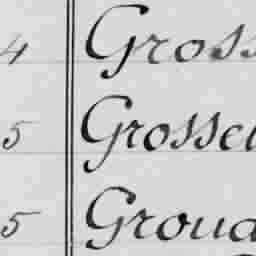 4 Gross
5 Grosse
5 Grou